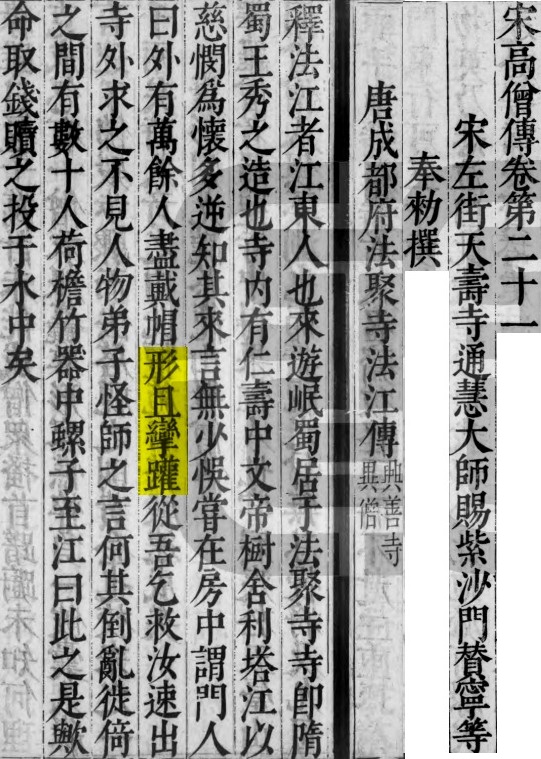 宋高僧傳卷第二十一
宋左街天壽寺通慧大師賜紫沙門賛寧等
奉勑撰
唐成都府法聚寺法江傳興善寺異僧
釋法江者江東人也來遊岷蜀居于法聚寺寺即隋
蜀王秀之造也寺内有仁壽中文帝樹舍利塔江以
慈憫爲懷多逆知其來言無少悞甞在房中謂門人
曰外有萬餘人盡戴帽形且攣躩從吾乞救汝速出
寺外求之不見人物弟子怪師之言何其倒亂徙倚
之間有數十人荷檐竹器中螺子至江曰此之是歟
命取錢贖之投于水中矣